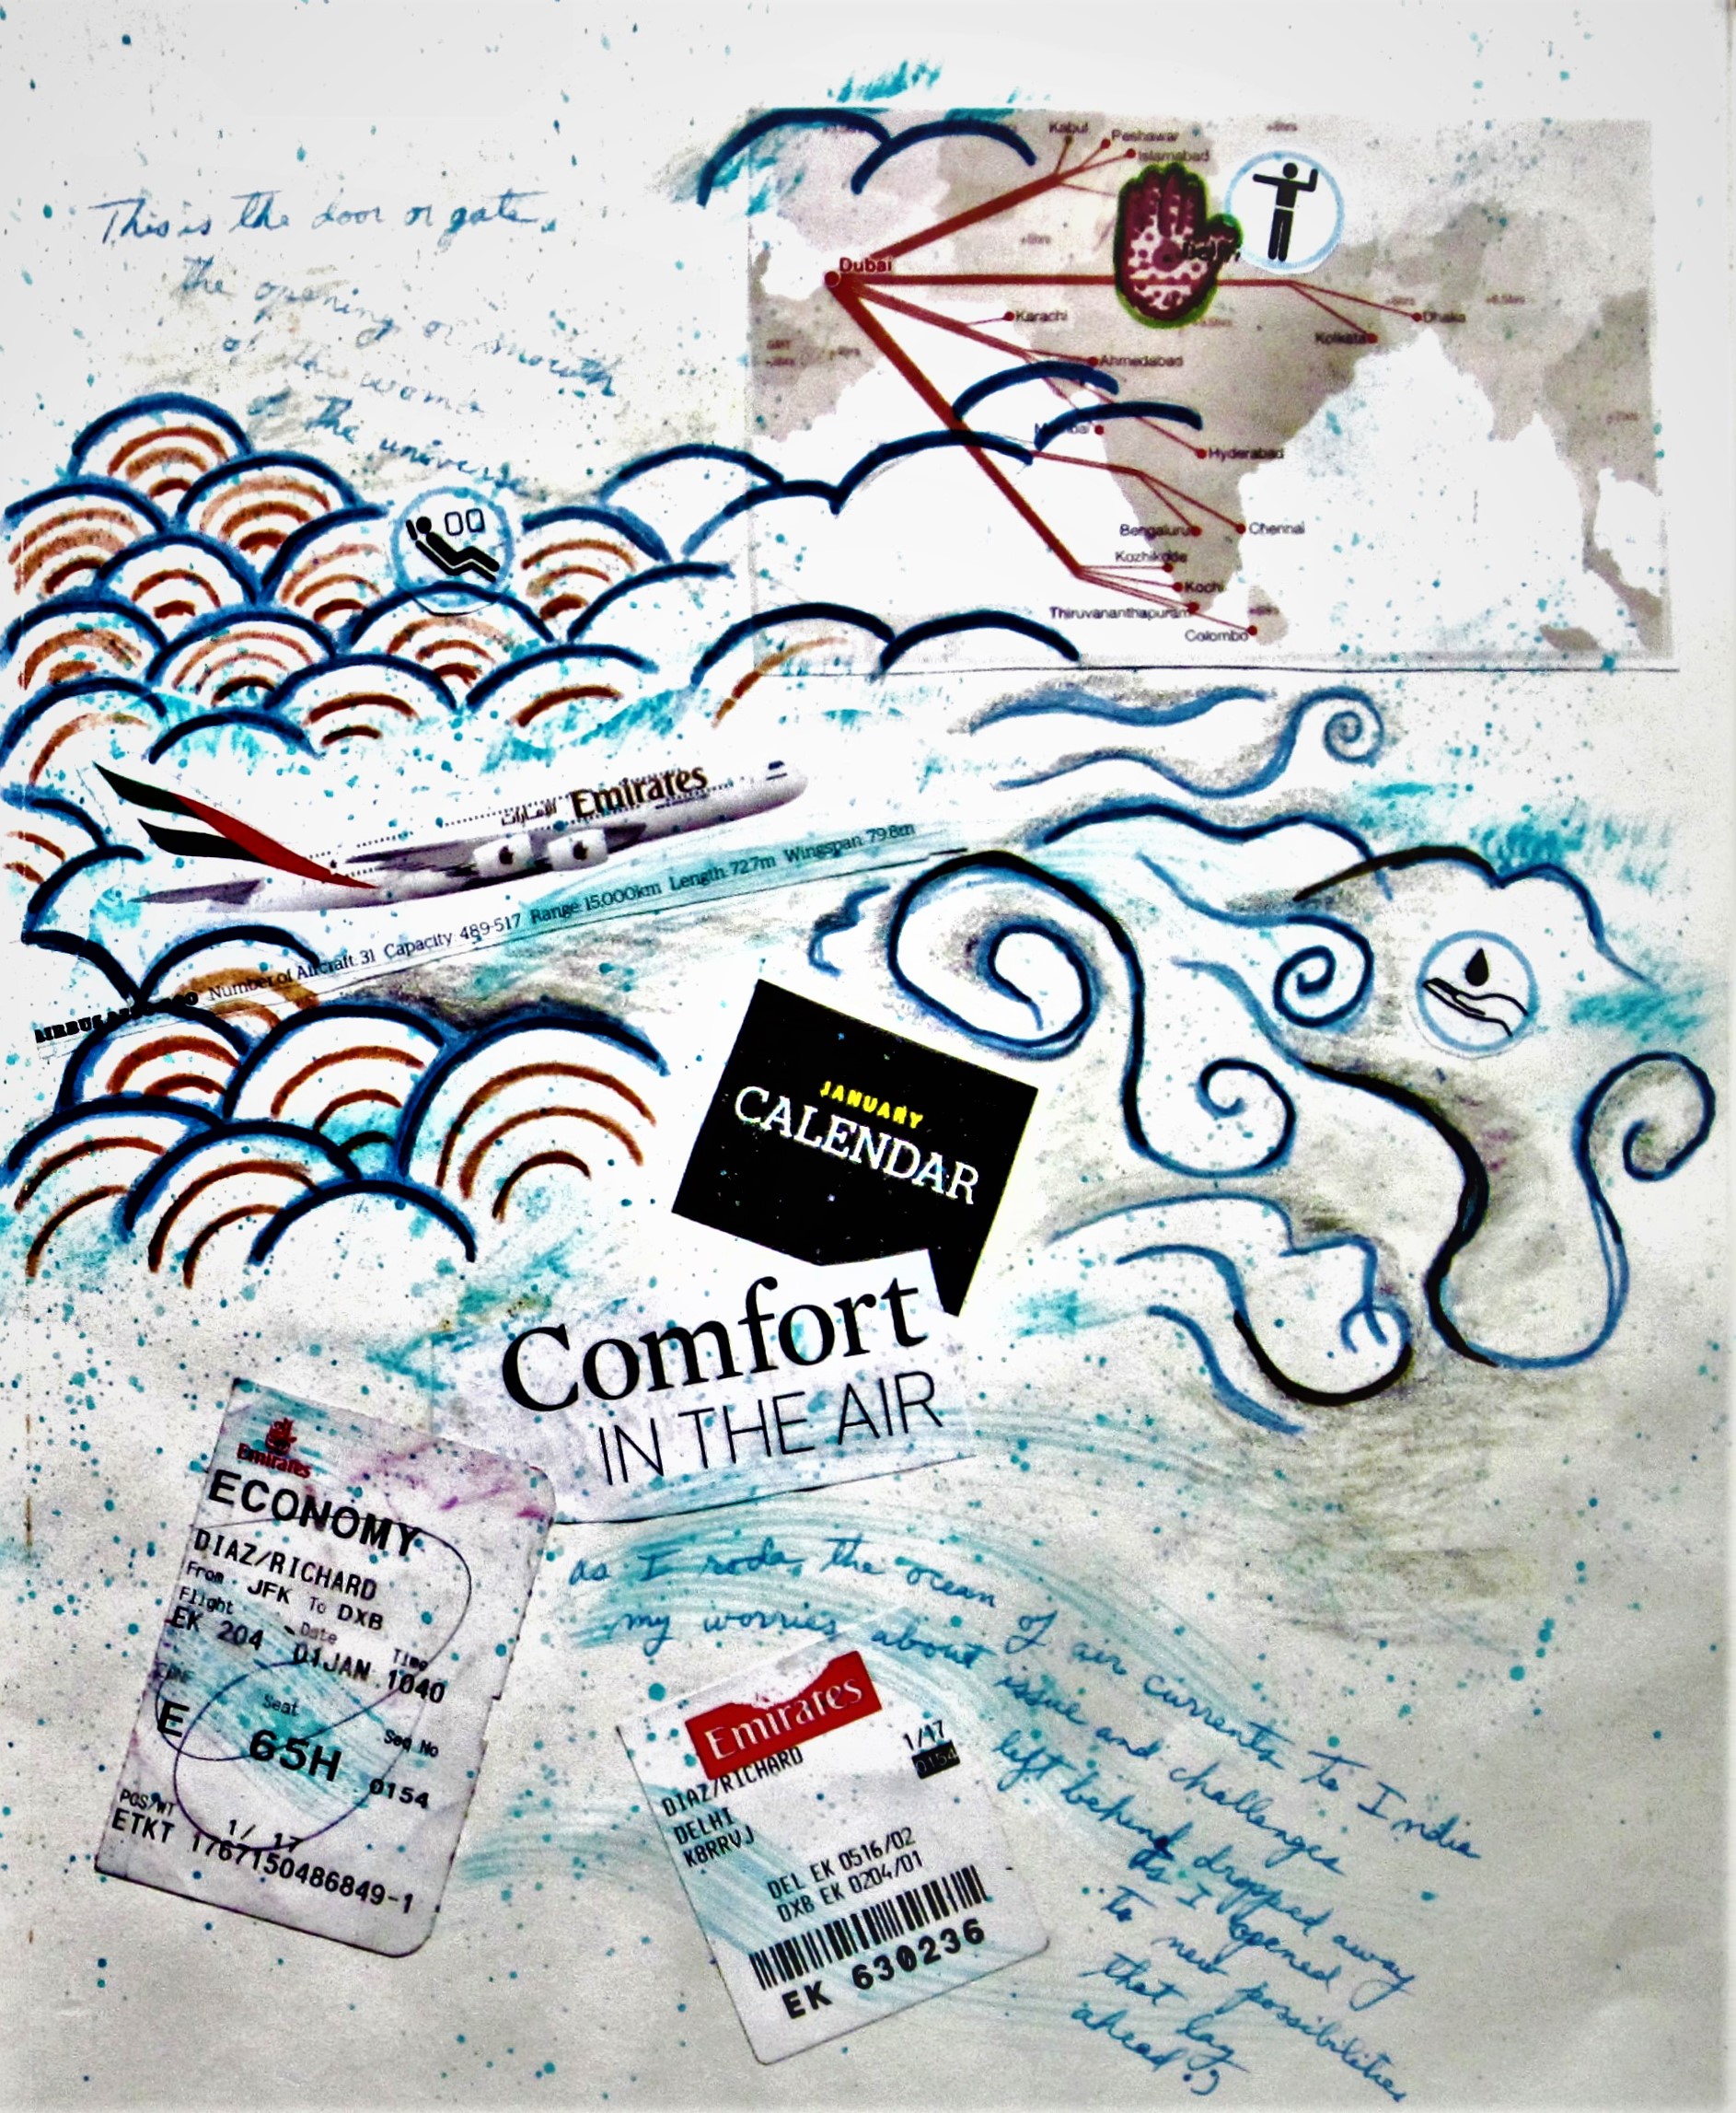 This is the door or gate,
the opening or mouth
of the womb
of the universe
Kabul
Peshawar
Islamabad
+5hrs
Dubai
Delhi
Karachi
Dhaka
Kolkata
Ahmedabad
Hyderabad
Bengaluru
Chennai
Kozhikode
Kochi
Thiruvananthapuram
Colombo
Emirates
الإمارات
Number of Aircraft: 31 Capacity: 489-517 Range: 15,000km Length: 72.7m Wingspan: 79.8m
JANUARY
CALENDAR
Comfort
IN THE AIR
Emirates
ECONOMY
DIAZ/RICHARD
From JFK To DXB
Flight Date Time
EK 204 01JAN 1040
E Seat Seq No
65H 0154
PCS/WT 1/ 17
ETKT 1767150486849-1
as I rode the ocean of air currents to India
my worries about issue and challenges
left behind dropped away
as I opened
to new possibilities
that lay
ahead.
Emirates
DIAZ/RICHARD 1/17
DELHI 0154
K8RRVJ
DEL EK 0516/02
DXB EK 0204/01
EK 630236